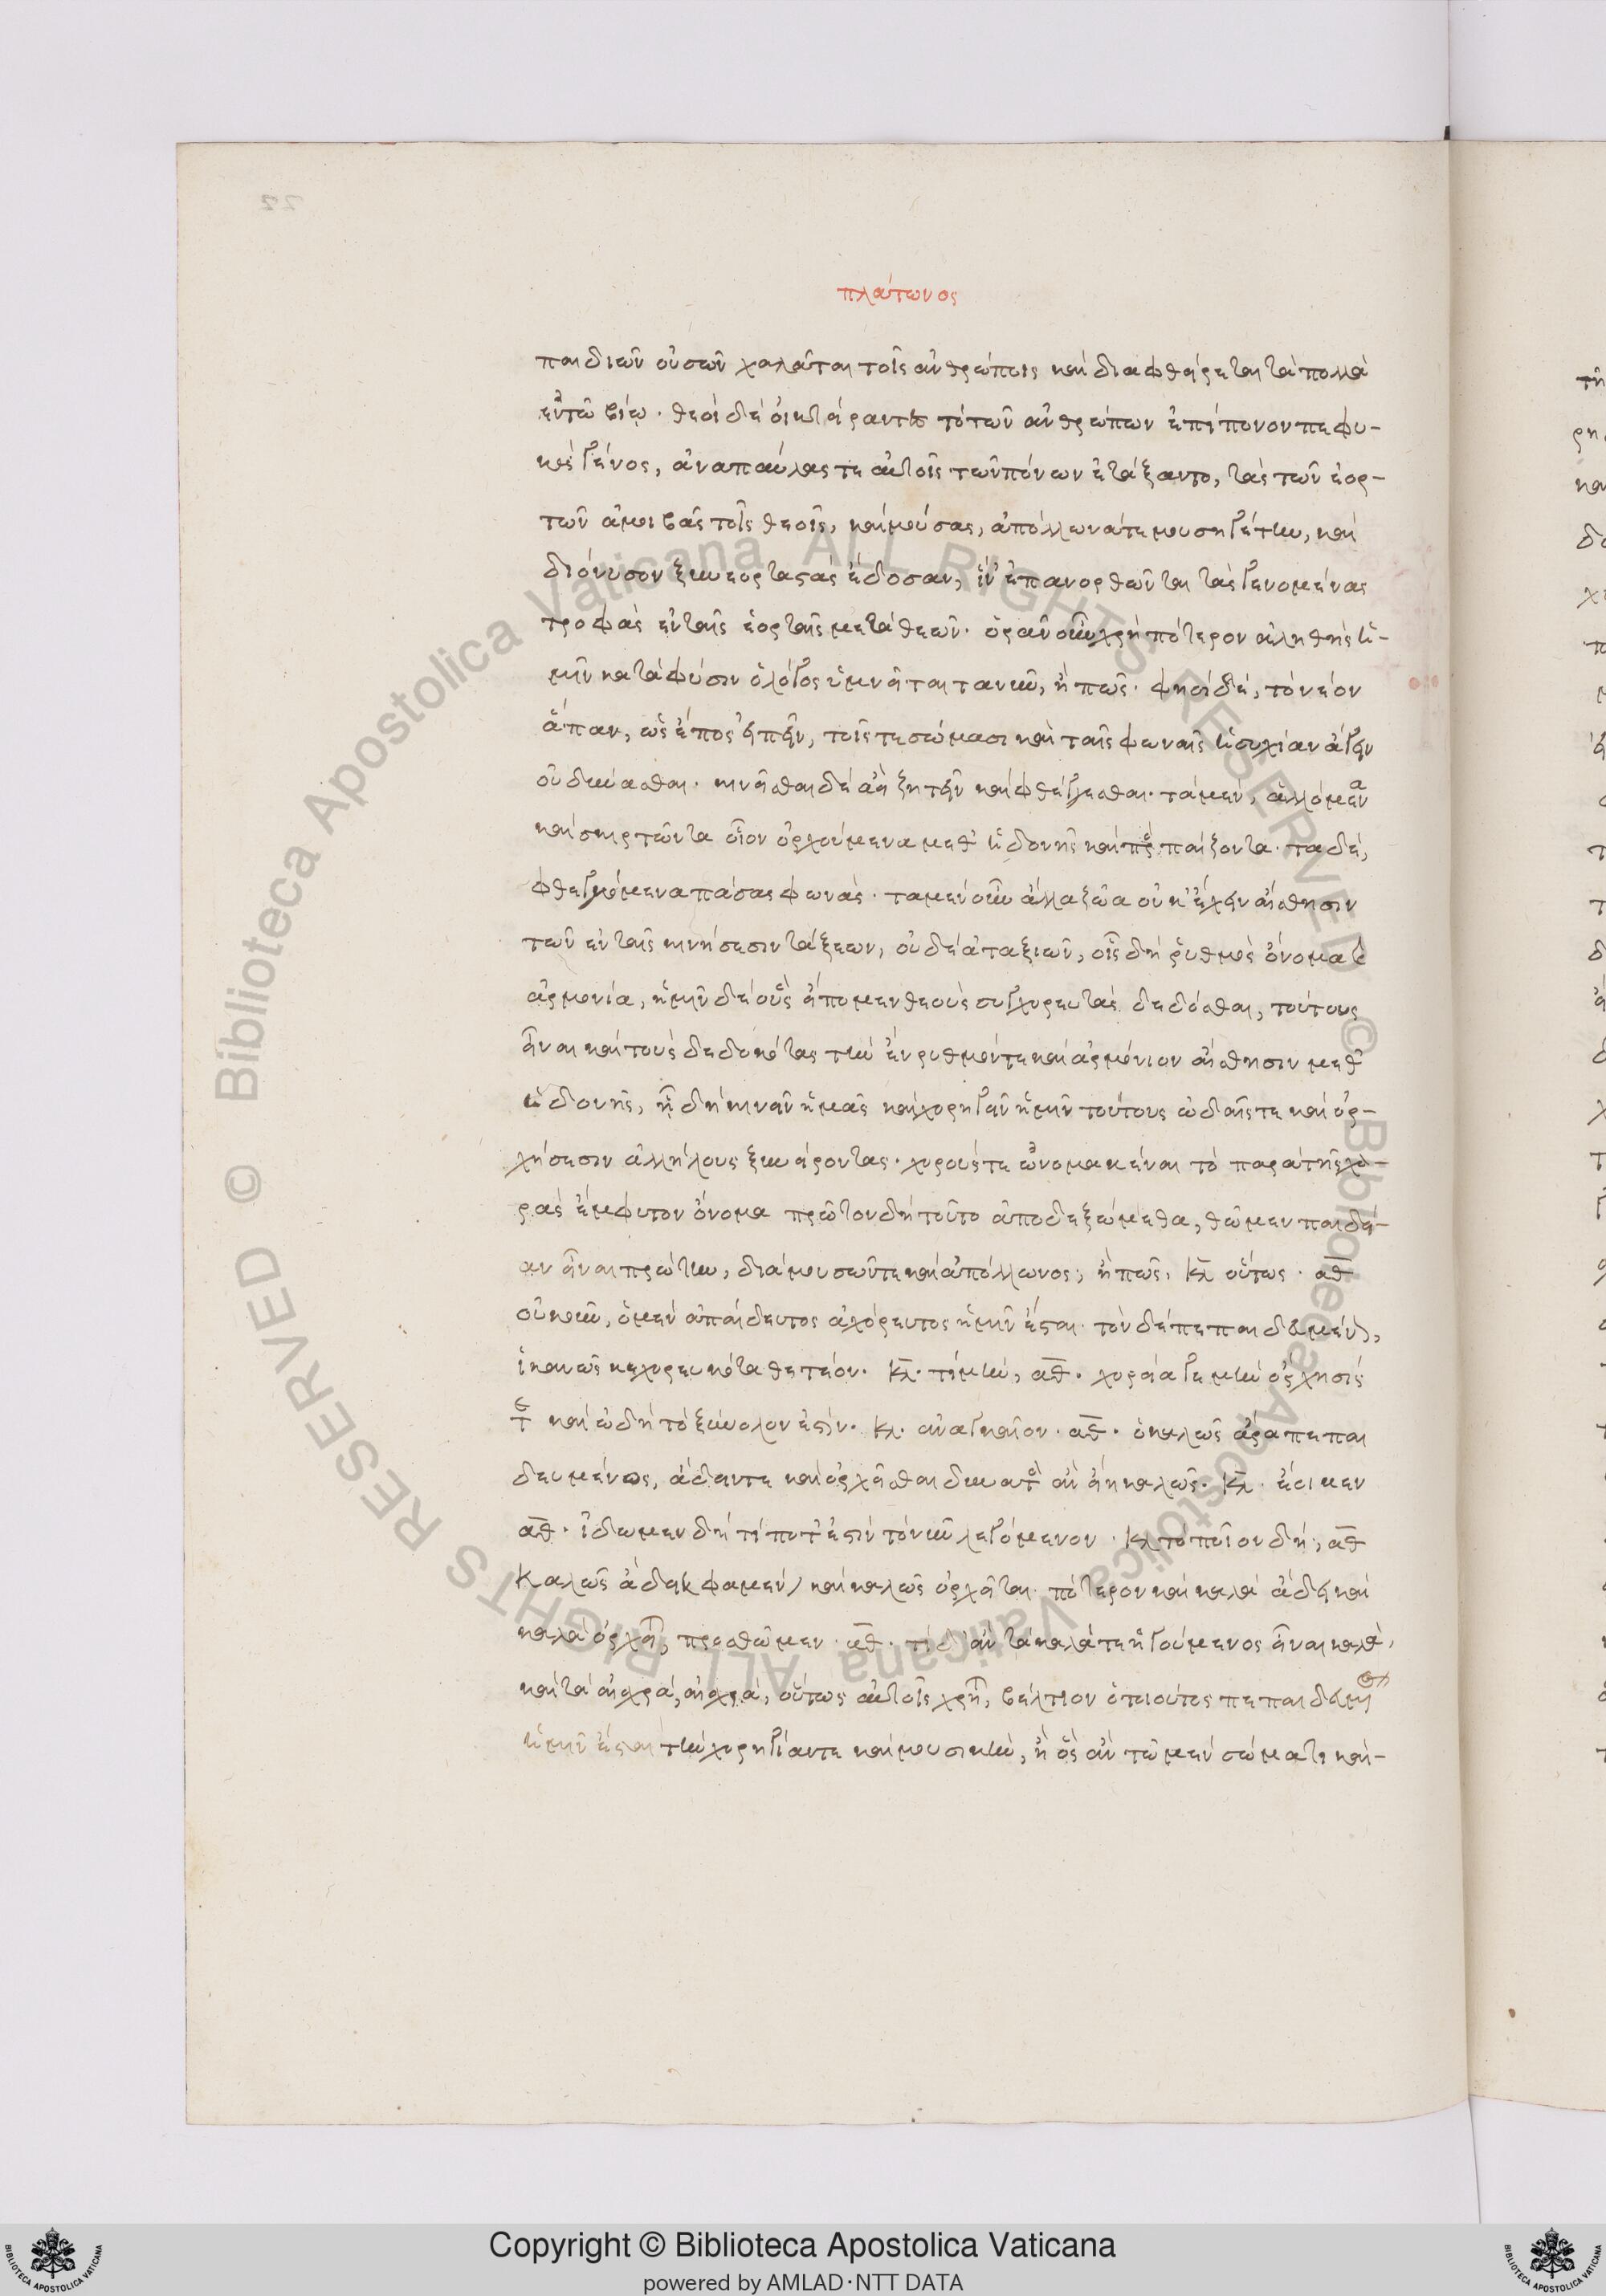 πλάτωνος
παιδιῶν οὐσῶν χαλᾶται τοῖς ἀνθρώποις καὶ διαφθείρεται τὰ πολλὰ
ἐν τῶ βίω· θεοὶ δὲ οἰκτείραντες τὸ τῶν ἀνθρώπων ἐπίπονον πεφυ-
κὸς γένος, ἀναπαύλας τε αὐτοῖς τῶν πόνων ἐτάξαντο, τὰς τῶν ἑορ-
τῶν ἀμοιβὰς τοῖς θεοῖς, καὶ μούσας, ἀπόλλωνά τε μουσηγέτην, καὶ
διόνυσον ξυνεορταστὰς ἔδοσαν, ἵν' ἐπανορθῶνται τὰς γενομένας
τροφὰς ἐν ταῖς ἑορταῖς μετὰ θεῶν· ὁρᾶν οὖν χρὴ πότερον ἀληθὴς ἡ-
μῖν κατὰ φύσιν ὁ λόγος ὑμνῆται τανῦν, ἢ πῶς· φησὶ δὲ, τὸ νέον
ἅπαν, ὡς ἔπος εἰπεῖν, τοῖς τε σώμασι καὶ ταῖς φωναῖς ἡσυχίαν ἄγειν
οὐ δύνασθαι· κινεῖσθαι δὲ ἀεὶ ζητεῖν καὶ φθέγγεσθαι· τὰ μὲν, ἁλλόμενα
καὶ σκιρτῶντα οἷον ὀρχούμενα μεθ' ἡδονῆς καὶ πρὸς παίζοντα· τὰ δὲ,
φθεγγόμενα πάσας φωνάς· τὰ μὲν οὖν ἄλλα ζῶα οὐκ ἔχειν αἴσθησιν
τῶν ἐν ταῖς κινήσεσιν τάξεων, οὐδὲ ἀταξιῶν, οἷς δὴ ῥυθμὸς ὄνομα καὶ
ἁρμονία, ἡμῖν δὲ οὓς εἴπομεν θεοὺς συγχορευτὰς δεδόσθαι, τούτους
εἶναι καὶ τοὺς δεδωκότας τὴν ἔνρυθμόν τε καὶ ἁρμόνιον αἴσθησιν μεθ'
ἡδονῆς, ἧ δὴ κινεῖν ἡμᾶς καὶ χορηγεῖν ἡμῖν τούτους ὠδαῖς τε καὶ ὀρ-
χήσεσιν ἀλλήλους ξυνείροντας· χορούς τε ὠνομακέναι τὸ παρὰ τῆς χα-
ρᾶς ἔμφυτον ὄνομα πρῶτον δὴ τοῦτο ἀποδεξώμεθα, θῶμεν παιδεί-
αν εἶναι πρώτην, διὰ μουσῶν τε καὶ ἀπόλλωνος, ἢ πῶς, κλ οὕτως· αθ
οὐκοῦν, ὁ μὲν ἀπαίδευτος ἀχόρευτος ἡμῖν ἔσται· τὸν δὲ πεπαιδευμένον,
ἱκανῶς κεχορευκότα θετέον· κλ· τί μήν, αθ· χορεία γε μὴν ὄρχησίς
τε καὶ ὠδὴ τὸ ξύνολον ἐστίν· κλ· ἀναγκαῖον· αθ· ὁ καλῶς ἄρα πεπαι
δευμένος, ἄδειν τε καὶ ὀρχεῖσθαι δυνατὸς ἂν εἴη καλῶς· κλ· ἔοικεν
αθ· ἴδωμεν δὴ τί ποτ' ἐστὶν τὸ νῦν λεγόμενον· κλ τὸ ποῖον δὴ, αθ
καλῶς ἄδει φαμὲν, καὶ καλῶς ὀρχεῖται πότερον καὶ καλὰ ἄδει καὶ
καλὰ ὀρχεῖται, προσθῶμεν· αθ· τί δ' ἂν τὰ καλά τε ἡγούμενος εἶναι καλὰ,
καὶ τὰ αἰσχρὰ, αἰσχρὰ, οὕτως αὐτοῖς χρῆται, βέλτιον ὁ τοιοῦτος πεπαιδευμένος
ἡμῖν ἔσται τὴν χορηγίαν τε καὶ μουσικὴν, ἢ ὃς ἂν τῶ μὲν σώματι καὶ-